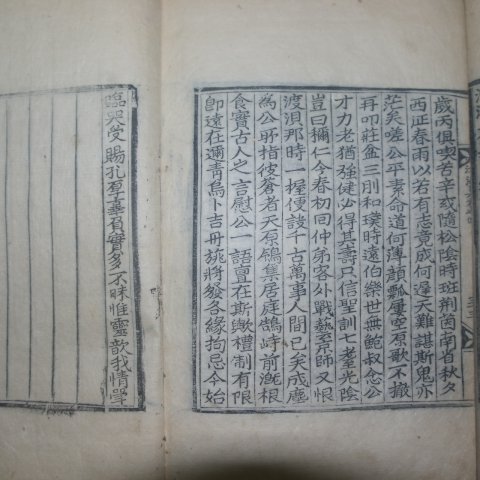 歲丙俱喫苦辛或隨松陰時班荆茵南省秋夕
西疋春雨以若有志竟成何遲天難諶斯鬼亦
茫矣嗟公平素命道何薄顔瓢屢空原歌不撤
再叩莊盆三刖和璞時遠伯樂世無鮑叔念公
才力老猶強健必得其壽只信聖訓七耋光陰
豈曰禰仁今春初回仲弟客外戰藝京師又恨
渡浿那時一握便設千古萬事人間已矣成塵
為公所指彼蒼者天原鴒集居庭鵠峙前根
食實古人之言慰公一語亶在斯歟禮制有限
卽遠在邇靑烏卜吉丹旐將發各緣拘忌今始
臨哭受賜孔厚辜負實多不昧惟靈歆我情